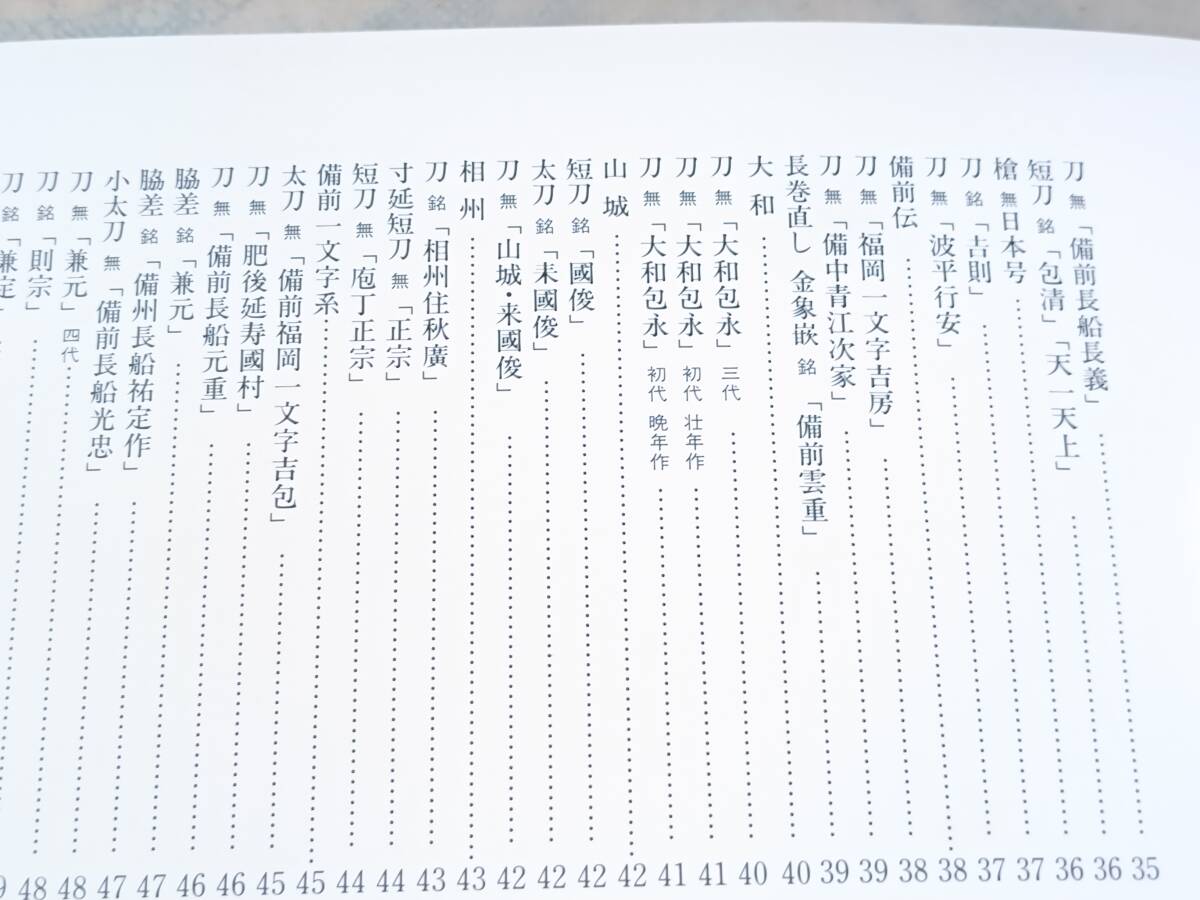 刀 無「備前長船長義」 35
短刀 銘「包清」「天一天上」 36
槍 無 日本号 36
刀 銘「吉則」 37
刀 無「波平行安」 37
備前伝 38
刀 無「福岡一文字吉房」 38
刀 無「備中青江次家」 39
長巻直し 金象嵌 銘「備前雲重」 39
大和 40
刀 無「大和包永」三代 40
刀 無「大和包永」初代 壮年作 41
刀 無「大和包永」初代 晩年作 41
山城 42
短刀 銘「國俊」 42
太刀 銘「来國俊」 42
刀 無「山城・来國俊」 42
相州 43
刀 銘「相州住秋廣」 43
寸延短刀 無「正宗」 44
短刀 無「庖丁正宗」 44
備前一文字系 45
太刀 無「備前福岡一文字吉包」 45
刀 無「肥後延寿國村」 46
刀 無「備前長船元重」 46
脇差 銘「兼元」 47
脇差 銘「備州長船祐定作」 47
小太刀 無「備前長船光忠」 48
刀 無「兼元」四代 48
刀 銘「則宗」 9
刀 銘「兼定」